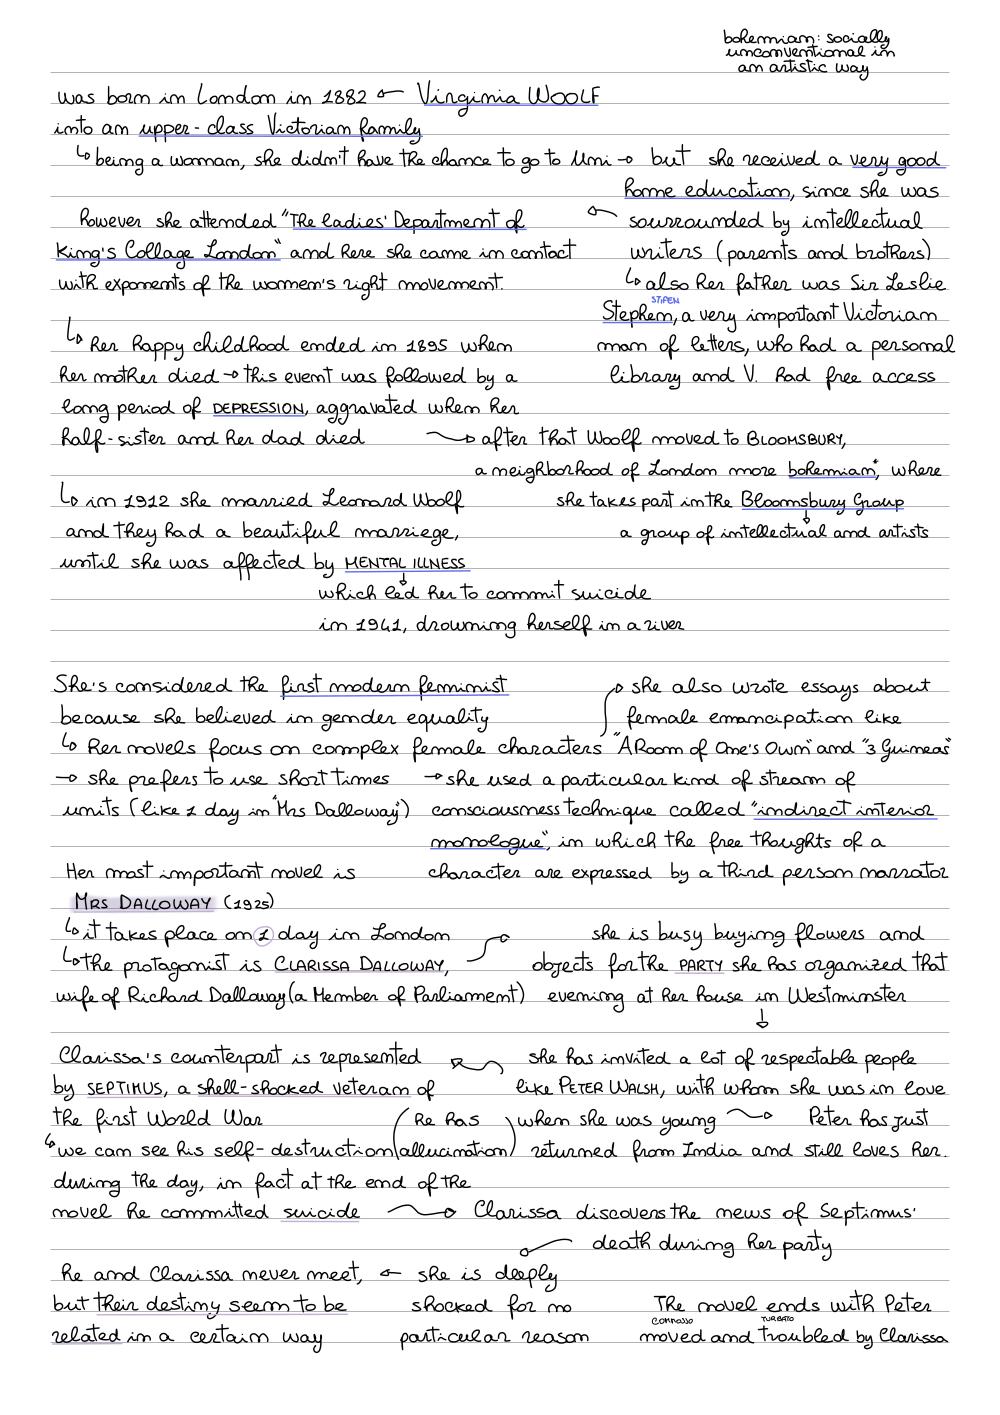 bohemian: socially
unconventional in
an artistic way
was born in London in 1882 ← Virginia WOOLF
into an upper-class Victorian family
↳ being a woman, she didn't have the chance to go to Uni → but she received a very good
home education, since she was
however she attended "The ladies' Department of
sourrounded by intellectual
King's Collage London" and here she came in contact
writers (parents and brothers)
with exponents of the women's right movement.
↳ also her father was Sir Leslie
STIPEN
Stephen, a very important Victorian
↳ her happy childhood ended in 1895 when
man of letters, who had a personal
her mother died → this event was followed by a
library and V. had free access
long period of DEPRESSION, aggravated when her
half-sister and her dad died → after that Woolf moved to BLOOMSBURY,
a neighborhood of London more bohemian*, where
↳ in 1912 she married Leonard Woolf
she takes part in the Bloomsbury Group
and they had a beautiful marriege,
↓ a group of intellectual and artists
until she was affected by MENTAL ILLNESS
↓ which led her to commit suicide
in 1941, drowning herself in a river
She's considered the first modern feminist
because she believed in gender equality
↳ her novels focus on complex female characters
→ she also wrote essays about
female emancipation like
"A Room of One's Own" and "3 Guineas"
→ she prefers to use short times
units (like 1 day in "Mrs Dalloway")
→ she used a particular kind of stream of
consciousness technique called "indirect interior
monologue", in which the free thoughts of a
character are expressed by a third person narrator
Her most important novel is
MRS DALLOWAY (1925)
↳ it takes place on 1 day in London
↳ the protagonist is CLARISSA DALLOWAY,
wife of Richard Dalloway (a Member of Parliament)
→ she is busy buying flowers and
objects for the PARTY she has organized that
evening at her house in Westminster
↓
she has invited a lot of respectable people
like PETER WALSH, with whom she was in love
when she was young → Peter has just
returned from India and still loves her.
Clarissa's counterpart is represented
by SEPTIMUS, a shell-shocked veteran of
the first World War
(he has
allucination)
↳ we can see his self-destruction
during the day, in fact at the end of the
novel he committed suicide → Clarissa discovers the news of Septimus'
death during her party
he and Clarissa never meet, ← she is deeply
but their destiny seem to be
shocked for no
related in a certain way
particular reason
The novel ends with Peter
COMMOSSO TURBATO
moved and troubled by Clarissa